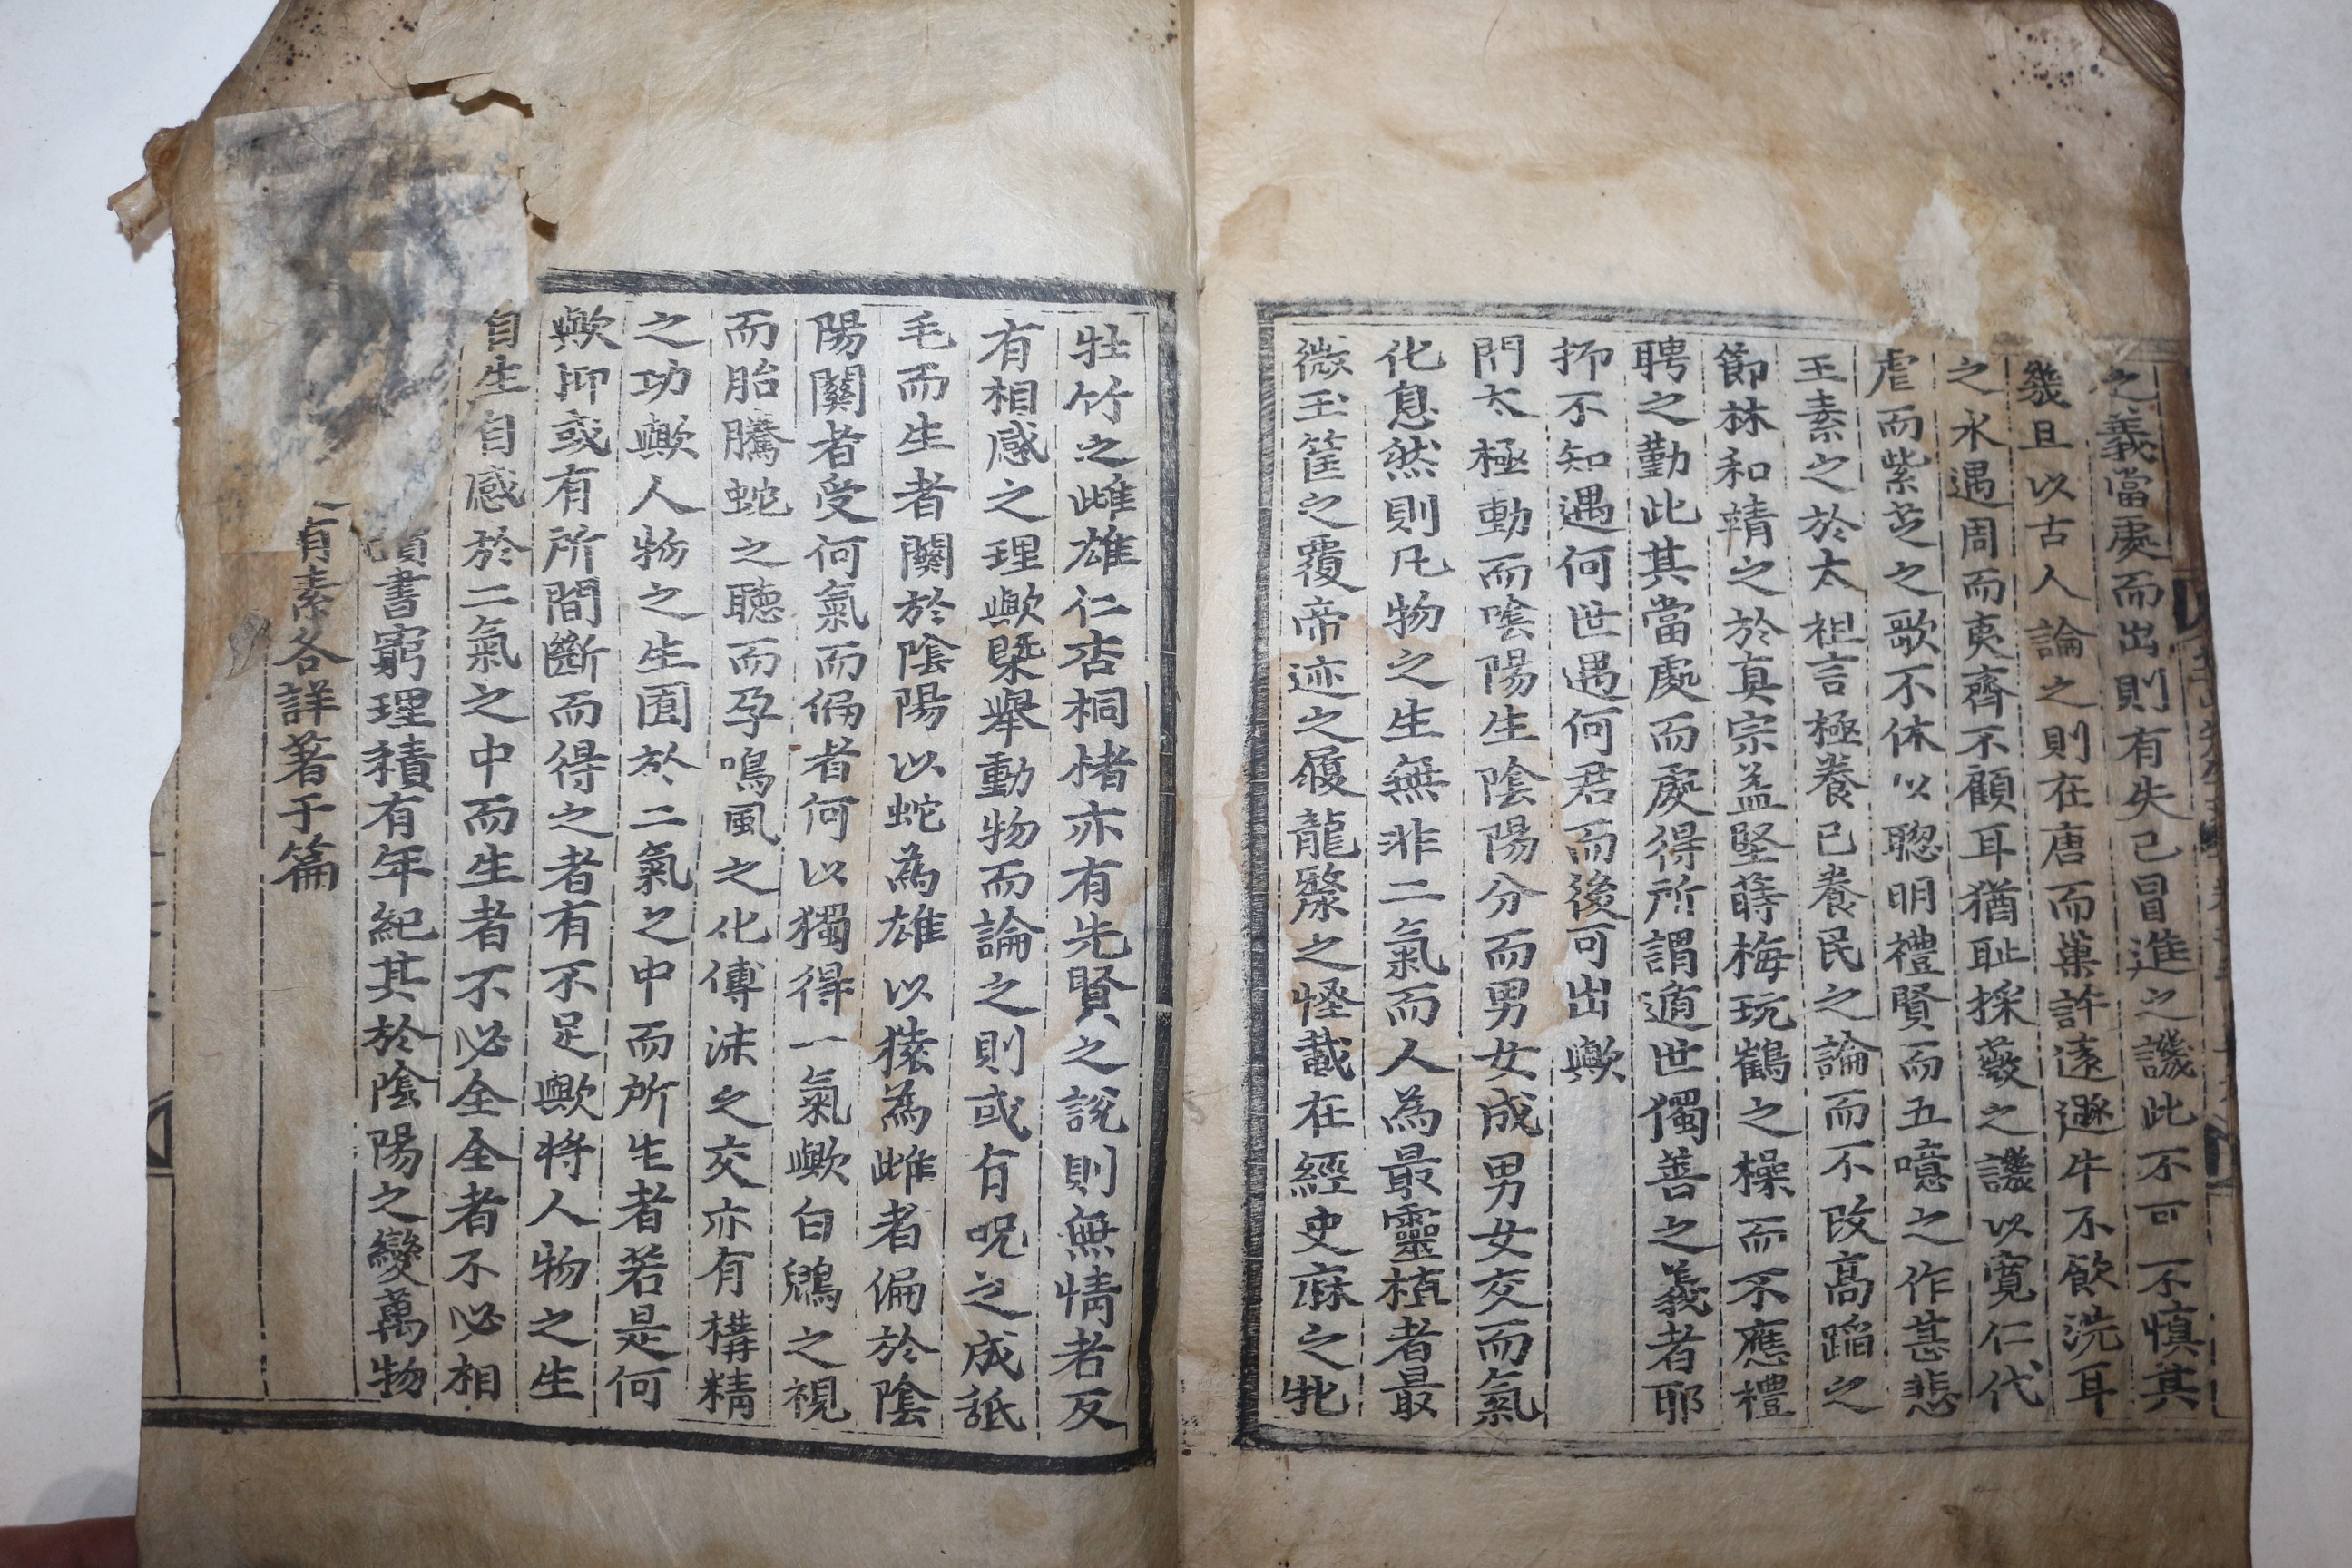 之義當處而出則有失己冒進之譏此不可不慎其
幾且以古人論之則在唐而巢許遠遯牛不飮洗耳
之水遇周而夷齊不顧耳猶耻採薇之譏以寬仁代
虐而紫芝之歌不休以聰明禮賢而五噫之作甚悲
王素之於太祖言極養己養民之論而不改高蹈之
節林和靖之於真宗盖堅蒔梅玩鶴之操而不應禮
聘之勤此其當處而處得所謂遁世獨善之義者耶
抑不知遇何世遇何君而後可出歟
問太極動而陰陽生陰陽分而男女成男女交而氣
化息然則凡物之生無非二氣而人為最靈植者最
微玉筐之覆帝迹之履龍漦之怪載在經史麻之牝
牡竹之雌雄仁杏桐楮亦有先賢之說則無情者反
有相感之理歟槩舉動物而論之則或有呪之成舐
毛而生者關於陰陽以蛇為雄以猿為雌者偏於陰
陽關者受何氣而偏者何以獨得一氣歟白鷁之視
而胎騰蛇之聽而孕鳴風之化傳沫之交亦有構精
之功歟人物之生囿於二氣之中而所生者若是何
歟抑或有所間斷而得之者有不足歟將人物之生
自生自感於二氣之中而生者不必全全者不必相
讀書窮理積有年紀其於陰陽之變萬物
有素各詳著于篇